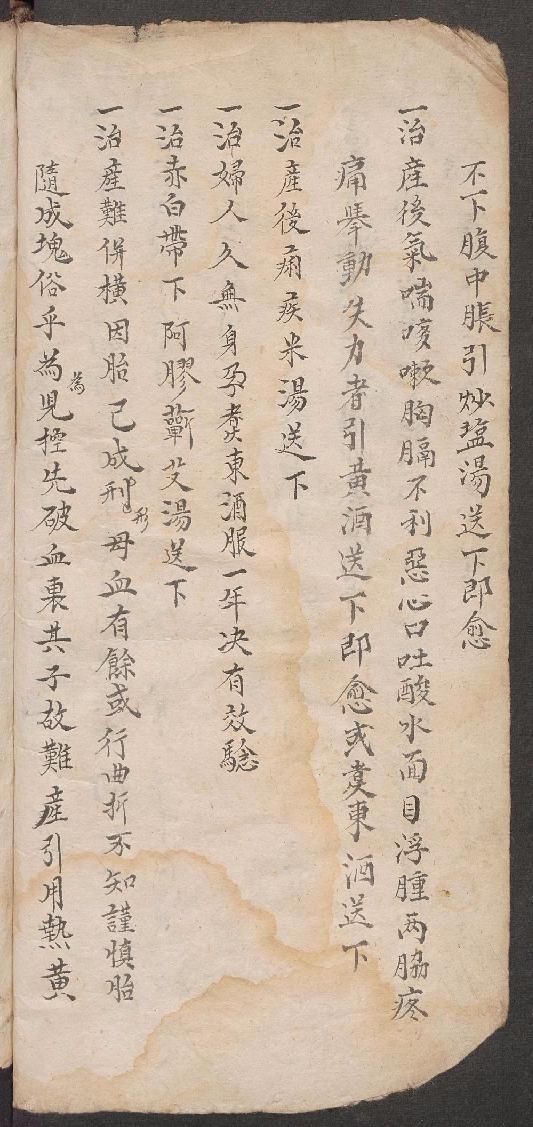 不下腹中脹引炒塩湯送下即愈
一治産後氣喘咳嗽胸膈不利惡心口吐酸水面目浮腫两脇疼
痛舉動失力者引黄酒送下即愈或煑東酒送下
一治産後痢疾米湯送下
一治婦人久無身孕煑東酒服一年决有效驗
一治赤白帶下阿膠蘄艾湯送下
一治産難倂横因胎已成刑形母血有餘或行曲折不知謹慎胎
隨成塊俗乎為為児控先破血裹其子故難産引用熱黄